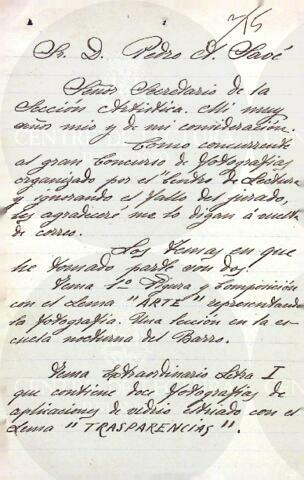 2/15
Sr. D. Pedro A. Savé
Señor Secretario de la
Sección Artistica. Mi muy
señor mio y de mi consideración.
Como concurrente
al gran Concurso de fotografías
organizado por el "Centro de Lectura
y ignorando el fallo del jurado,
les agradeceré me lo digan á vuelta
de correo.
Los temas en que
he tomado parte son dos.
Tema 1º Figura y Composición
con el Lema "ARTE" representando
la fotografia. Una lección en la es-
cuela nocturna del Barro.
Tema Extraordinario Letra I
que contiene doce fotografías de
aplicaciones de vidrio estriado con el
Lema "TRASPARENCIAS".